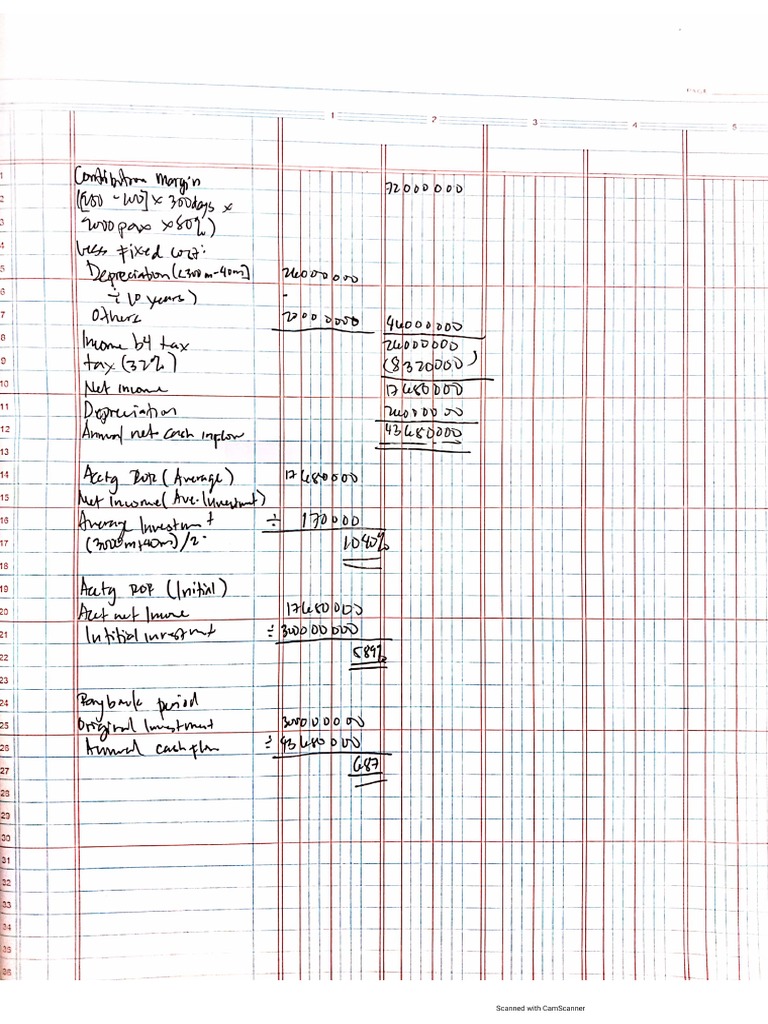 1 2 3 4 5
1 Contribution Margin 72000000
2 ([250 - 100] x 300 days x
3 2000 pax x 80%)
4 Less Fixed Cost:
5 Depreciation ([300m-40m] 26000000
6 ÷ 10 years) -
7 Others 20000000 46000000
8 Income b4 tax 26000000
9 tax (32%) (8320000)
10 Net income 17680000
11 Depreciation 26000000
12 Annual net cash inflow 43680000
13
14 Acctg ROR (Average) 17680000
15 Net income (Ave. Investment)
16 Average Investment ÷ 170000
17 (300m+40m)/2. 1040%
18
19 Acctg ROR (Initial)
20 net Income 17680000
21 Intitial investment ÷ 300000000
22 589%
23
24 Payback period
25 Original Investment 300000000
26 Annual cashflow ÷ 43680000
27 687
28
29
30
31
32
33
34
35
36
Scanned with CamScanner